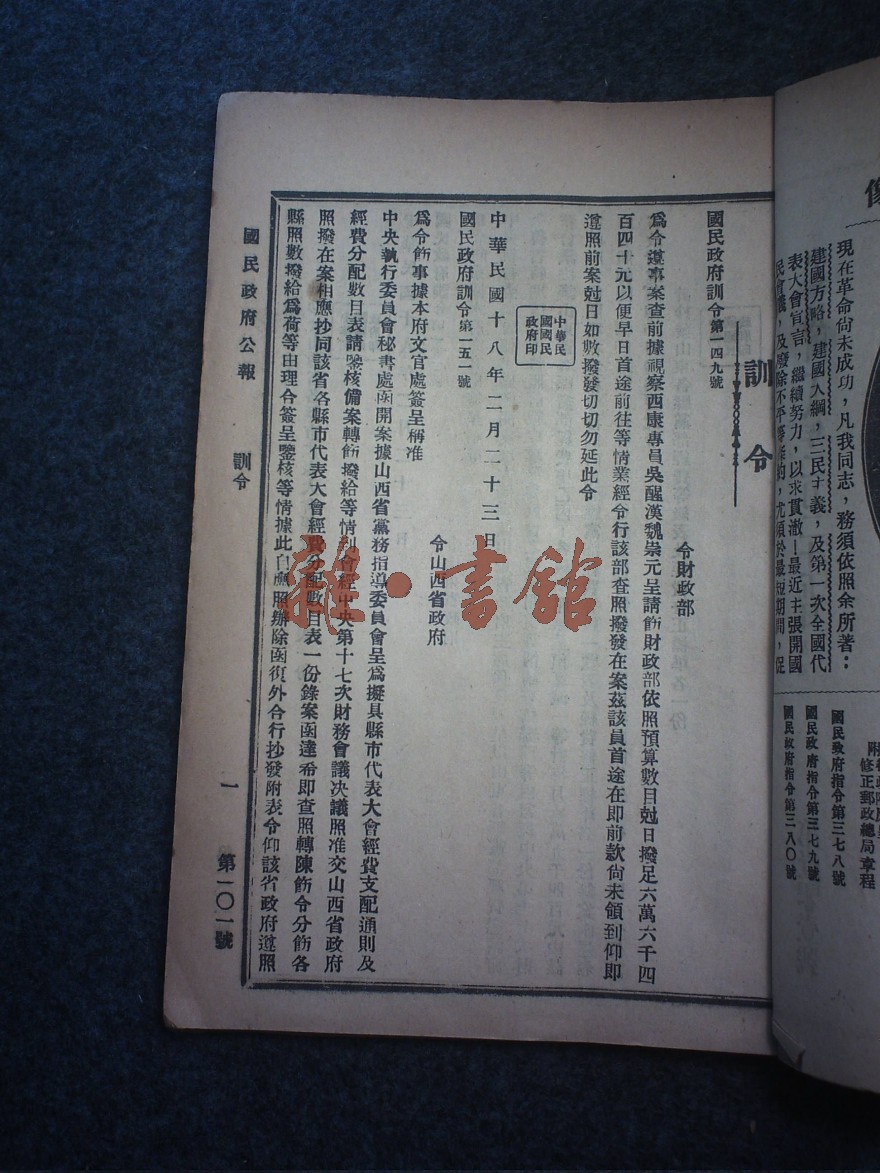 現在革命尚未成功，凡我同志，務須依照余所著：
建國方略，建國大綱，三民主義，及第一次全國代
表大會宣言，繼續努力，以求貫澈！最近主張開國
民會議，及廢除不平等條約，尤須於最短期間，促
修正郵政總局章程
國民政府指令第三七八號
國民政府指令第三七九號
國民政府指令第三八〇號
訓令
國民政府訓令第一四九號
令財政部
爲令遵事案查前據視察西康專員吳醒漢魏崇元呈請飭財政部依照預算數目尅日撥足六萬六千四
百四十元以便早日首途前往等情業經令行該部查照撥發在案茲該員首途在即前款尚未領到仰即
遵照前案尅日如數撥發切切勿延此令
中華民
國國民
政府印
中華民國十八年二月二十三日
國民政府訓令第一五一號
令山西省政府
爲令飭事據本府文官處簽呈稱准
中央執行委員會秘書處函開案據山西省黨務指導委員會呈爲擬具縣市代表大會經費支配通則及
經費分配數目表請鑒核備案轉飭撥給等情到會經中央第十七次財務會議决議照准交山西省政府
照撥在案相應抄同該省各縣市代表大會經費分配數目表一份錄案函達希即查照轉陳飭令分飭各
縣照數撥給爲荷等由理合簽呈鑒核等情據此自應照辦除函復外合行抄發附表令仰該省政府遵照
國民政府公報
訓令
一
第一〇一號
雜·書館